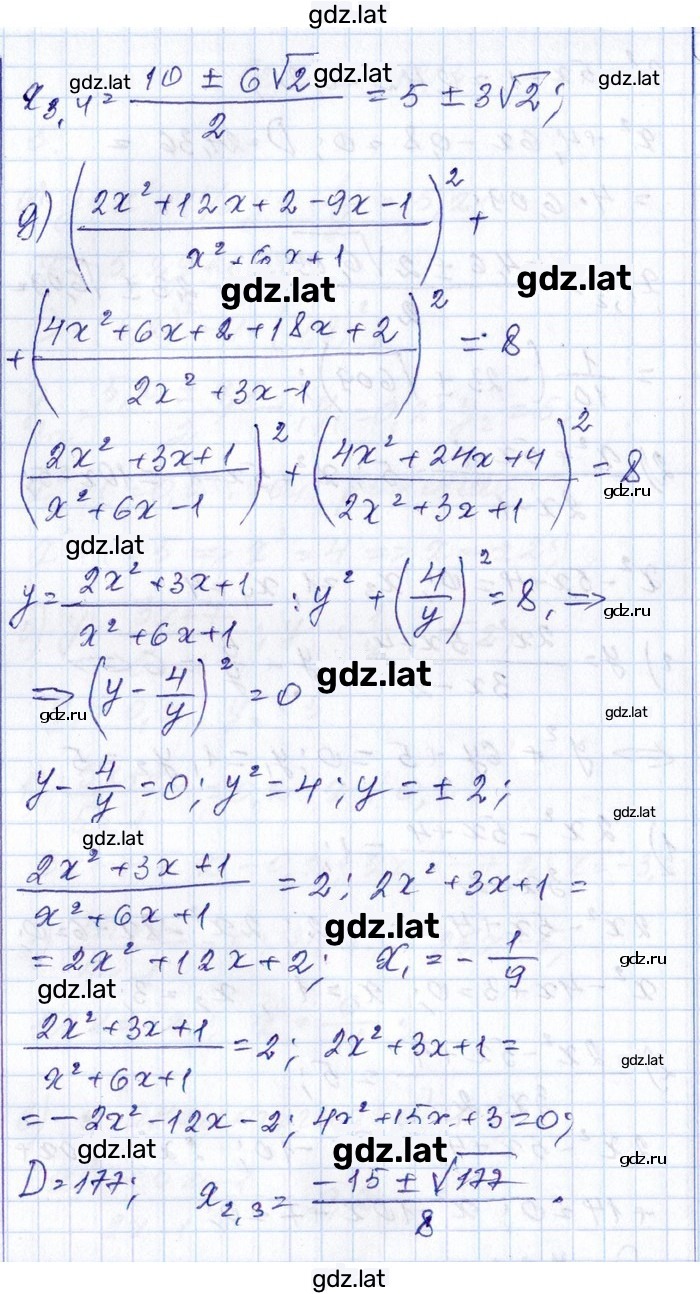 gdz.lat
gdz.lat gdz.lat gdz.lat
x₃,₄ = (10 ± 6√2)/2 = 5 ± 3√2;
д) ((2x² + 12x + 2 - 9x - 1)/(x² + 6x + 1))² +
gdz.lat gdz.lat
+ ((4x² + 6x + 2 + 18x + 2)/(2x² + 3x - 1))² = 8
((2x² + 3x + 1)/(x² + 6x - 1))² + ((4x² + 24x + 4)/(2x² + 3x + 1))² = 8
gdz.ru
gdz.lat
y = (2x² + 3x + 1)/(x² + 6x + 1) : y² + (4/y)² = 8, ⇒
gdz.ru
⇒ (y - 4/y)² = 0
gdz.lat
gdz.ru gdz.lat
y - 4/y = 0; y² = 4; y = ± 2;
gdz.lat
gdz.lat
(2x² + 3x + 1)/(x² + 6x + 1) = 2; 2x² + 3x + 1 =
gdz.lat
= 2x² + 12x + 2; x₁ = - 1/9
gdz.ru
gdz.lat
(2x² + 3x + 1)/(x² + 6x + 1) = 2; 2x² + 3x + 1 =
gdz.lat
= - 2x² - 12x - 2; 4x² + 15x + 3 = 0;
gdz.lat gdz.lat gdz.ru
D = 177; x₂,₃ = (-15 ± √177)/8.
gdz.lat